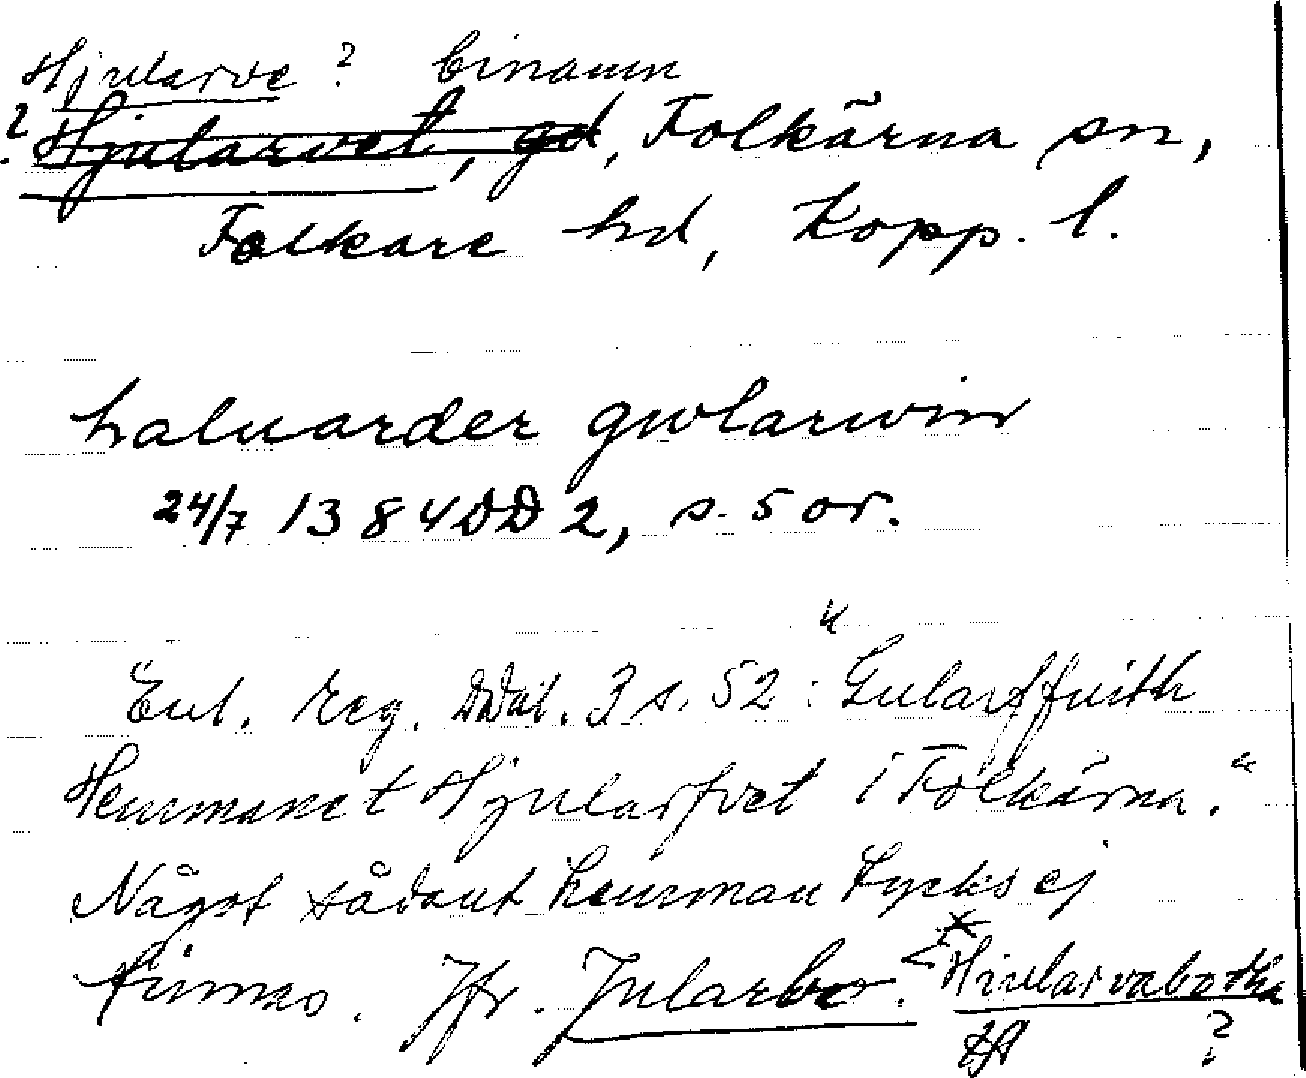 Hjularve ? binamn
? Hjularvet, gd, Folkärna sn,
Folkare hd, Kopp. l.
haluarder gwlarwin
24/7 1384 DD 2, s. 5 or.
Enl. reg. DDal. 3 s. 52 : "Gularffuith
Hemmanet Hjularfvet i Folkärna."
Något sådant hemman tycks ej
finnas. Jfr. Jularbo. < *Hiularvabotha
?